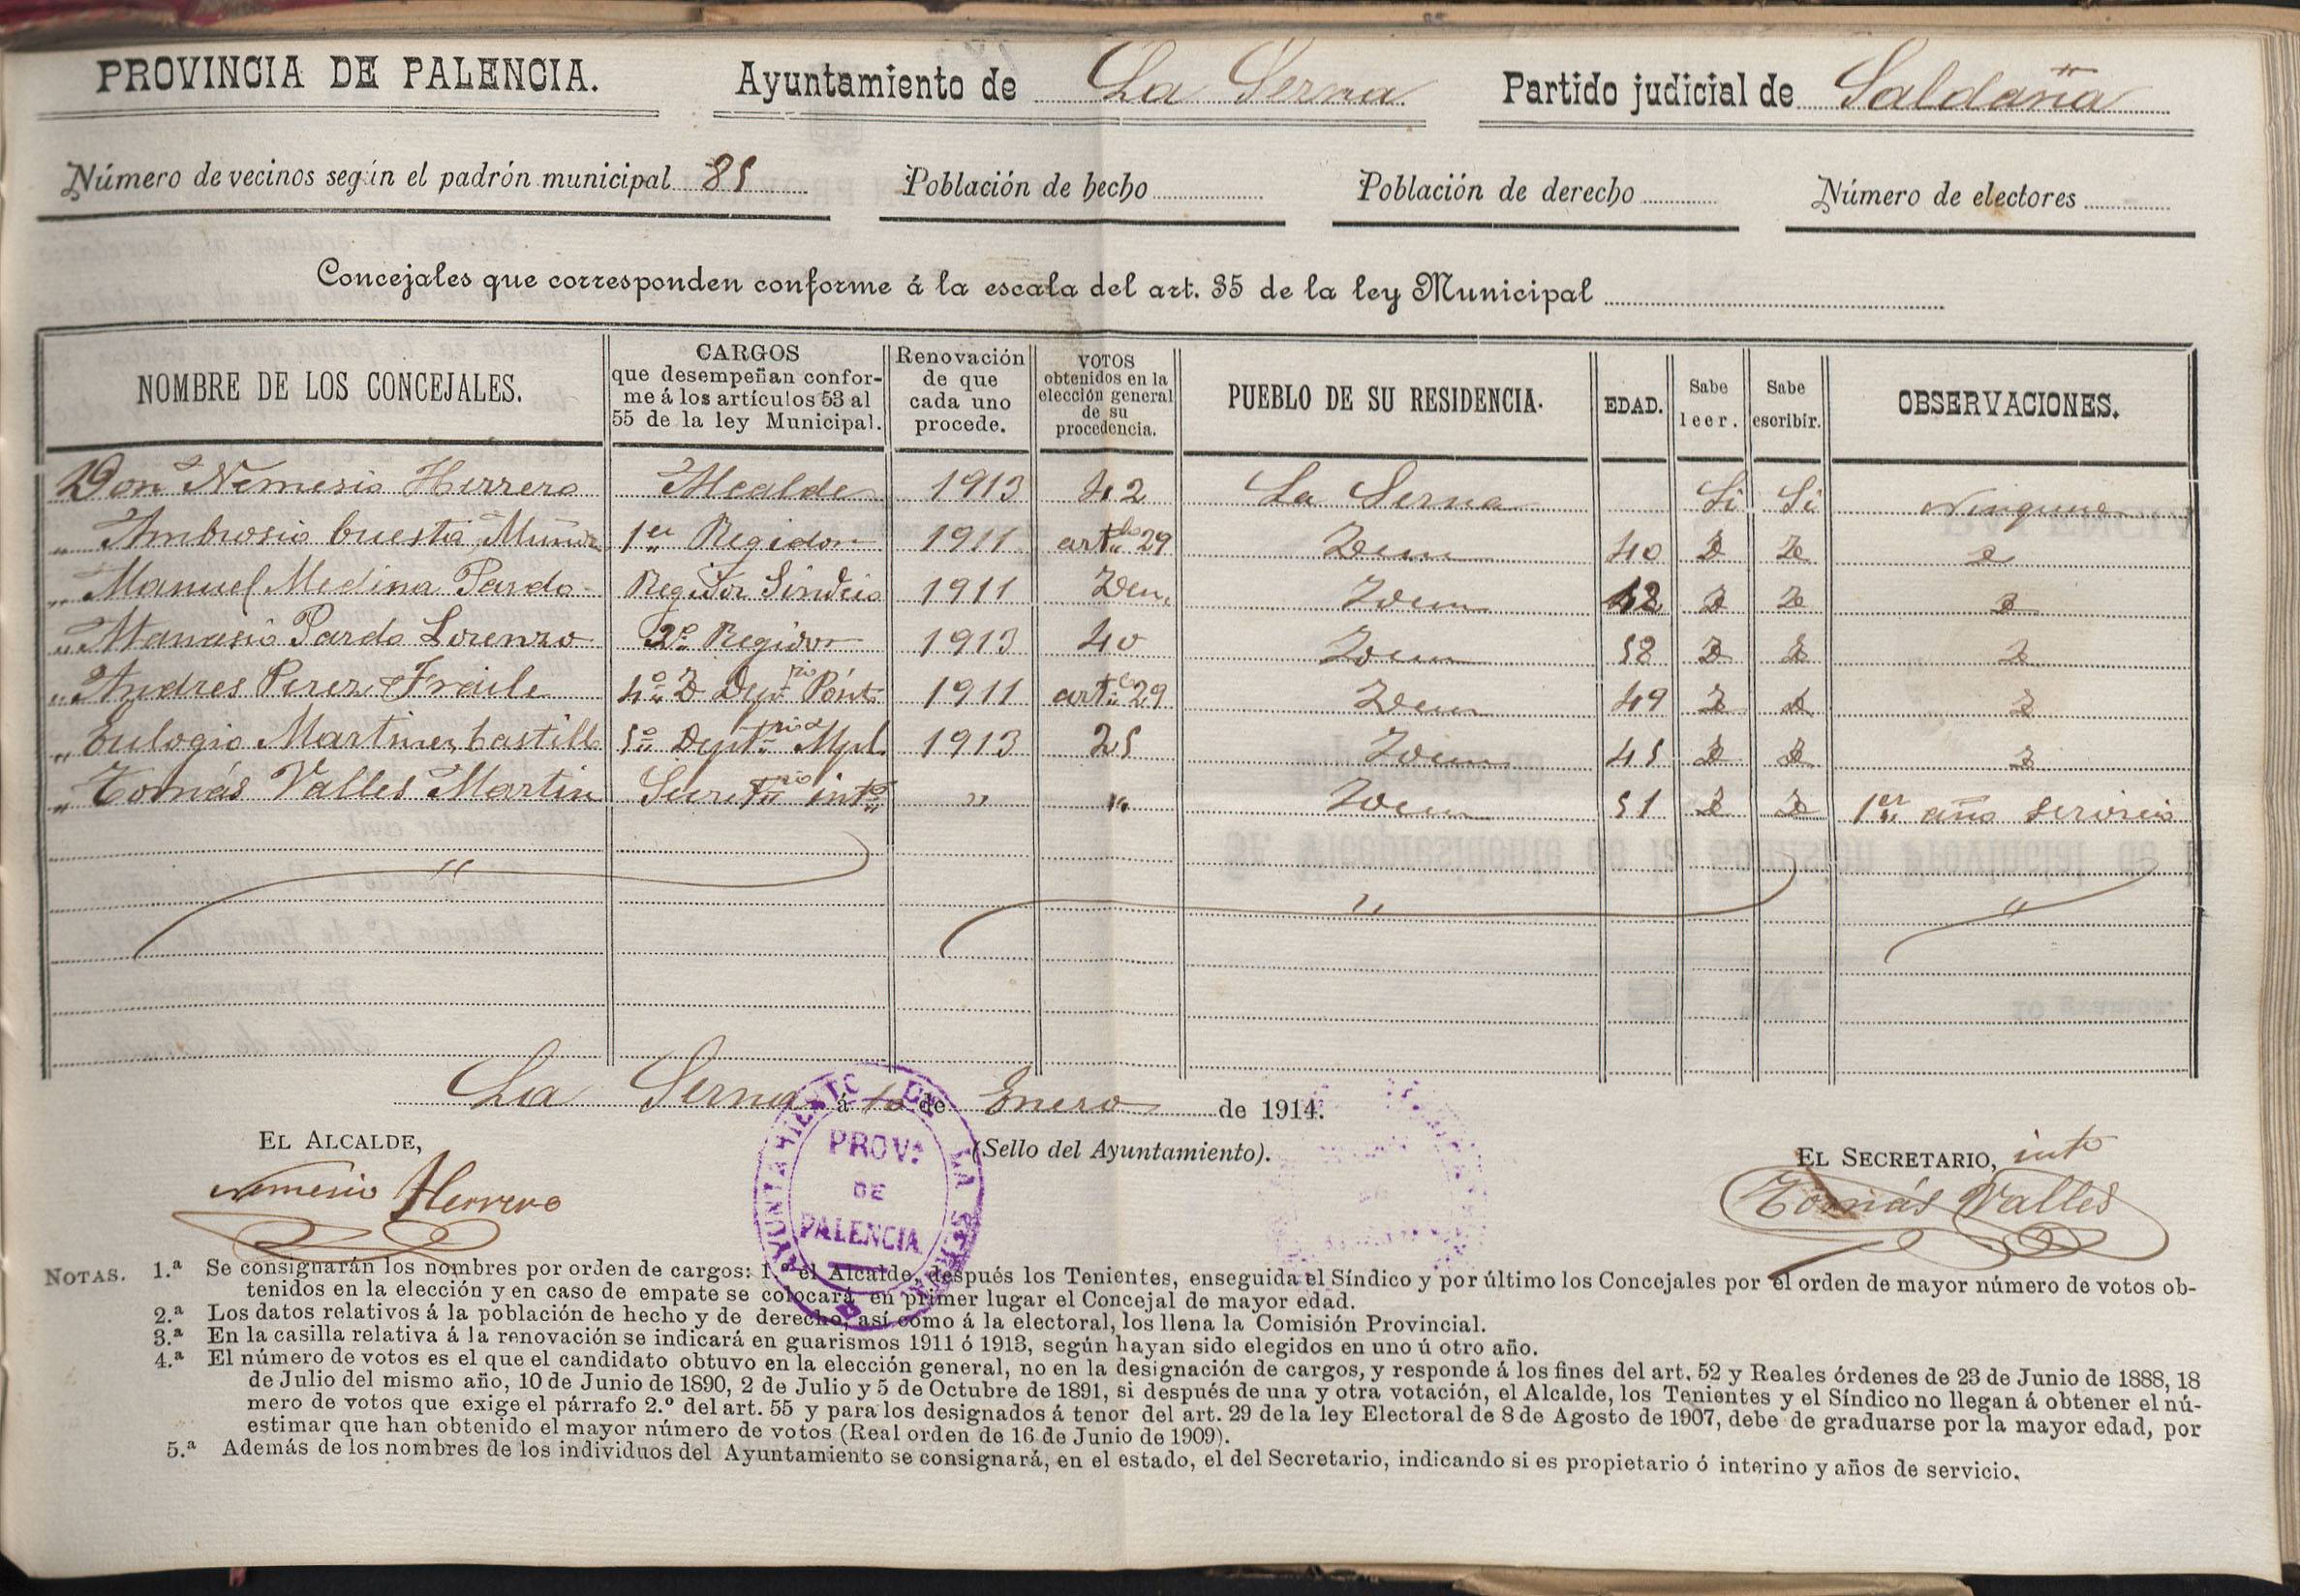 PROVINCIA DE PALENCIA. Ayuntamiento de La Serna Partido judicial de Saldaña
Número de vecinos según el padrón municipal 85 Población de hecho Población de derecho Número de electores
Concejales que corresponden conforme á la escala del art. 35 de la ley Municipal
NOMBRE DE LOS CONCEJALES. CARGOS que desempeñan conforme á los artículos 53 al 55 de la ley Municipal. Renovación de que cada uno procede. VOTOS obtenidos en la elección general de su procedencia. PUEBLO DE SU RESIDENCIA. EDAD. Sabe leer. Sabe escribir. OBSERVACIONES.
Don Nemesio Herrero Alcalde 1913 42 La Serna Si Si Ninguna
" Ambrosio Cuesta Muñoz 1er Regidor 1911 artlo 29 Idem 40
" Manuel Medina Pardo Regidor Sindico 1911 Idem Idem 42
" Manuel Pardo Lorenzo 2º Regidor 1913 40 Idem 58
" Andres Perez Fraile 4º 1911 29 Idem 49
" Eulogio Martinez Castillo 5º Mpal. 1913 25 Idem 45
" Tomás Valles Martin Secretrio intº " " Idem 51 1er año servicio
La Serna á 10 de Enero de 1914.
EL ALCALDE, (Sello del Ayuntamiento). EL SECRETARIO, into
Nemesio Herrero Tomás Valles
AYUNTAMIENTO DE LA SERNA
PROVª
DE
PALENCIA
NOTAS. 1.ª Se consignarán los nombres por orden de cargos: 1.º el Alcalde, después los Tenientes, enseguida el Síndico y por último los Concejales por el orden de mayor número de votos ob-
tenidos en la elección y en caso de empate se colocará en primer lugar el Concejal de mayor edad.
2.ª Los datos relativos á la población de hecho y de derecho, así como á la electoral, los llena la Comisión Provincial.
3.ª En la casilla relativa á la renovación se indicará en guarismos 1911 ó 1913, según hayan sido elegidos en uno ú otro año.
4.ª El número de votos es el que el candidato obtuvo en la elección general, no en la designación de cargos, y responde á los fines del art. 52 y Reales órdenes de 23 de Junio de 1888, 18
de Julio del mismo año, 10 de Junio de 1890, 2 de Julio y 5 de Octubre de 1891, si después de una y otra votación, el Alcalde, los Tenientes y el Síndico no llegan á obtener el nú-
mero de votos que exige el párrafo 2.º del art. 55 y para los designados á tenor del art. 29 de la ley Electoral de 8 de Agosto de 1907, debe de graduarse por la mayor edad, por
estimar que han obtenido el mayor número de votos (Real orden de 16 de Junio de 1909).
5.ª Además de los nombres de los individuos del Ayuntamiento se consignará, en el estado, el del Secretario, indicando si es propietario ó interino y años de servicio.